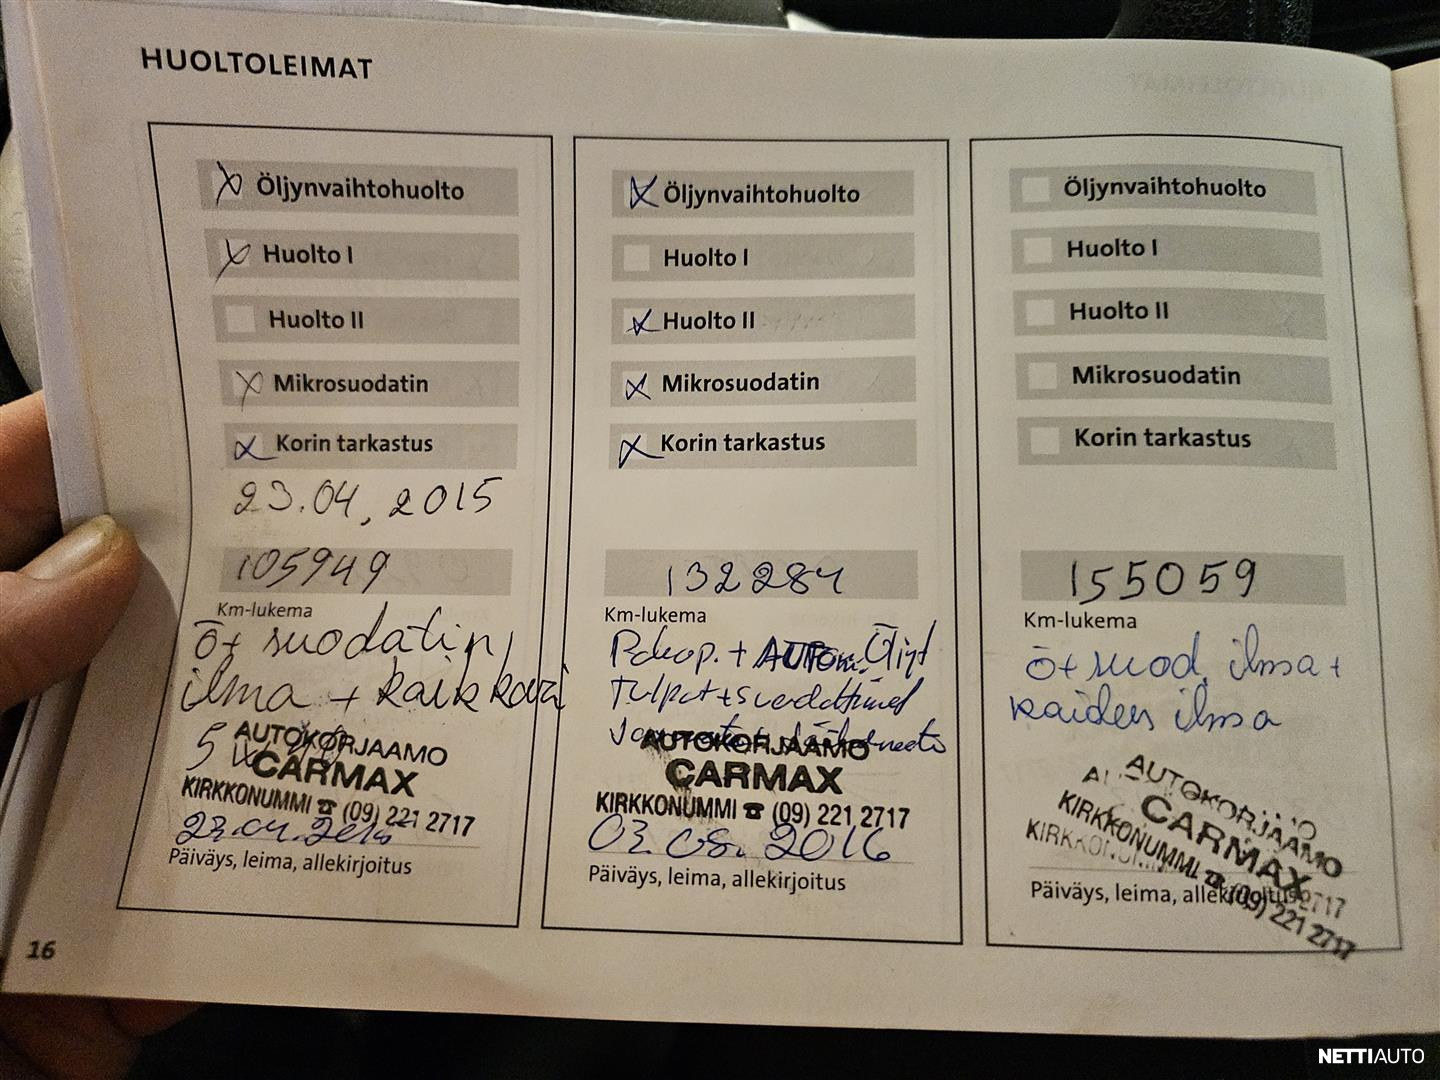 HUOLTOLEIMAT
Öljynvaihtohuolto
Huolto I
Huolto II
Mikrosuodatin
Korin tarkastus
23.04.2015
105949
Km-lukema
ö+ suodatin,
ilma + kaikkari
5
AUTOKORJAAMO
CARMAX
KIRKKONUMMI ☎ (09) 221 2717
Päiväys, leima, allekirjoitus
Öljynvaihtohuolto
Huolto I
Huolto II
Mikrosuodatin
Korin tarkastus
132284
Km-lukema
Tulpat+suodattimet
AUTOKORJAAMO
CARMAX
KIRKKONUMMI ☎ (09) 221 2717
03.08.2016
Päiväys, leima, allekirjoitus
Öljynvaihtohuolto
Huolto I
Huolto II
Mikrosuodatin
Korin tarkastus
155059
Km-lukema
ö+suod. ilma +
raiden ilma
AUTOKORJAAMO
CARMAX
KIRKKONUMMI ☎ (09) 221 2717
Päiväys, leima, allekirjoitus
16
NETTIAUTO